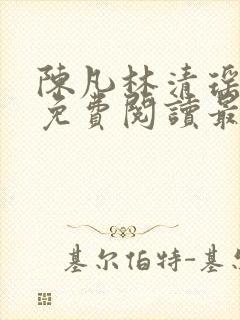 陳凡林清瑶
免費閱讀最
基尔伯特-基尔